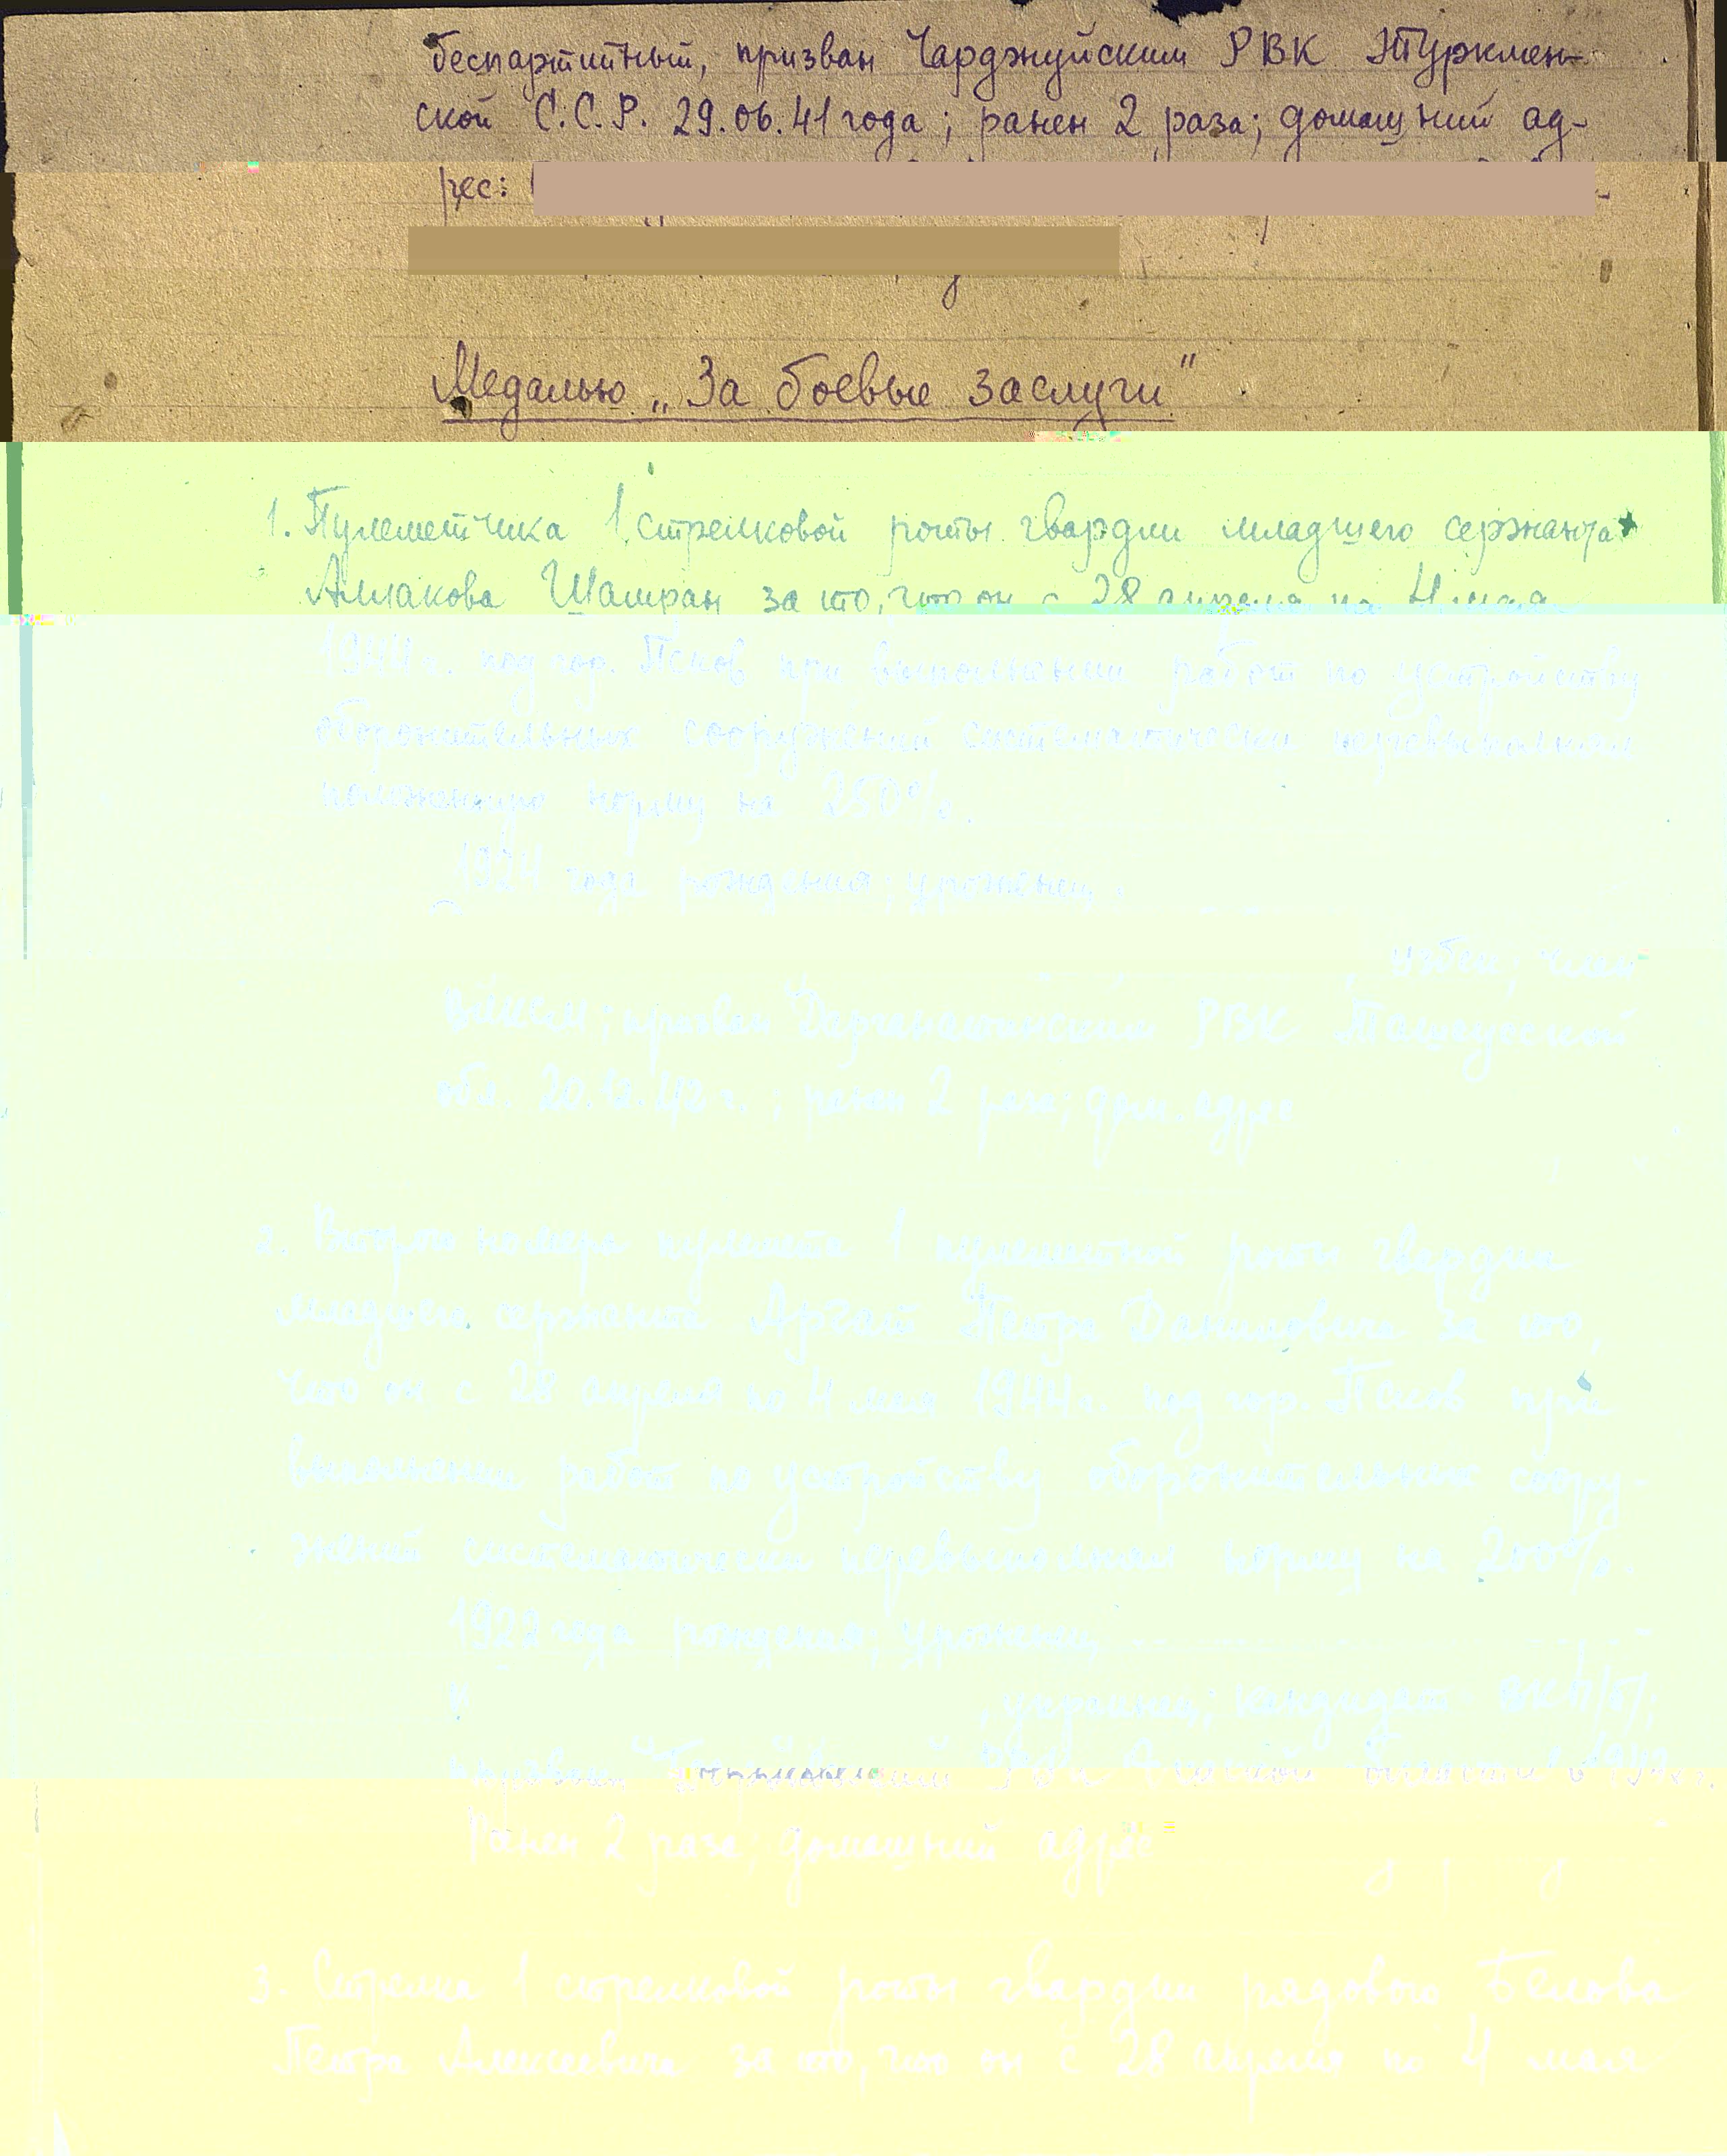 беспартийный, призван Чарджуйским РВК Туркмен-
ской С.С.Р. 29.06.41 года; ранен 2 раза; домашний ад-
рес:
Медалью „За боевые заслуги"
1. Пулеметчика 1 стрелковой роты гвардии младшего сержанта
Аллакова Шамран за то, что он с 28 апреля по 4 мая
1944 г. под гор. Псков при выполнении работ по устройству
оборонительных сооружений систематически перевыполнял
положенную норму на 250%.
1924 года рождения; уроженец
узбек; член
ВЛКСМ; призван РВК Ташаузской
обл. 20.12.42 г.; ранен 2 раза; дом. адрес
2. Второго номера пулемета 1 пулеметной роты гвардии
младшего сержанта Аргат Петра Даниловича за то,
что он с 28 апреля по 4 мая 1944 г. под гор. Псков при
выполнении работ по устройству оборонительных соору-
жений систематически перевыполнял норму на 200%.
1922 года рождения; уроженец
, украинец; кандидат ВКП/б/;
призван РВК области в
Ранен 2 раза; домашний адрес
3. Стрелка 1 стрелковой роты гвардии рядового Белова
Петра Алексеевича за то, что он с 28 апреля по 4 мая